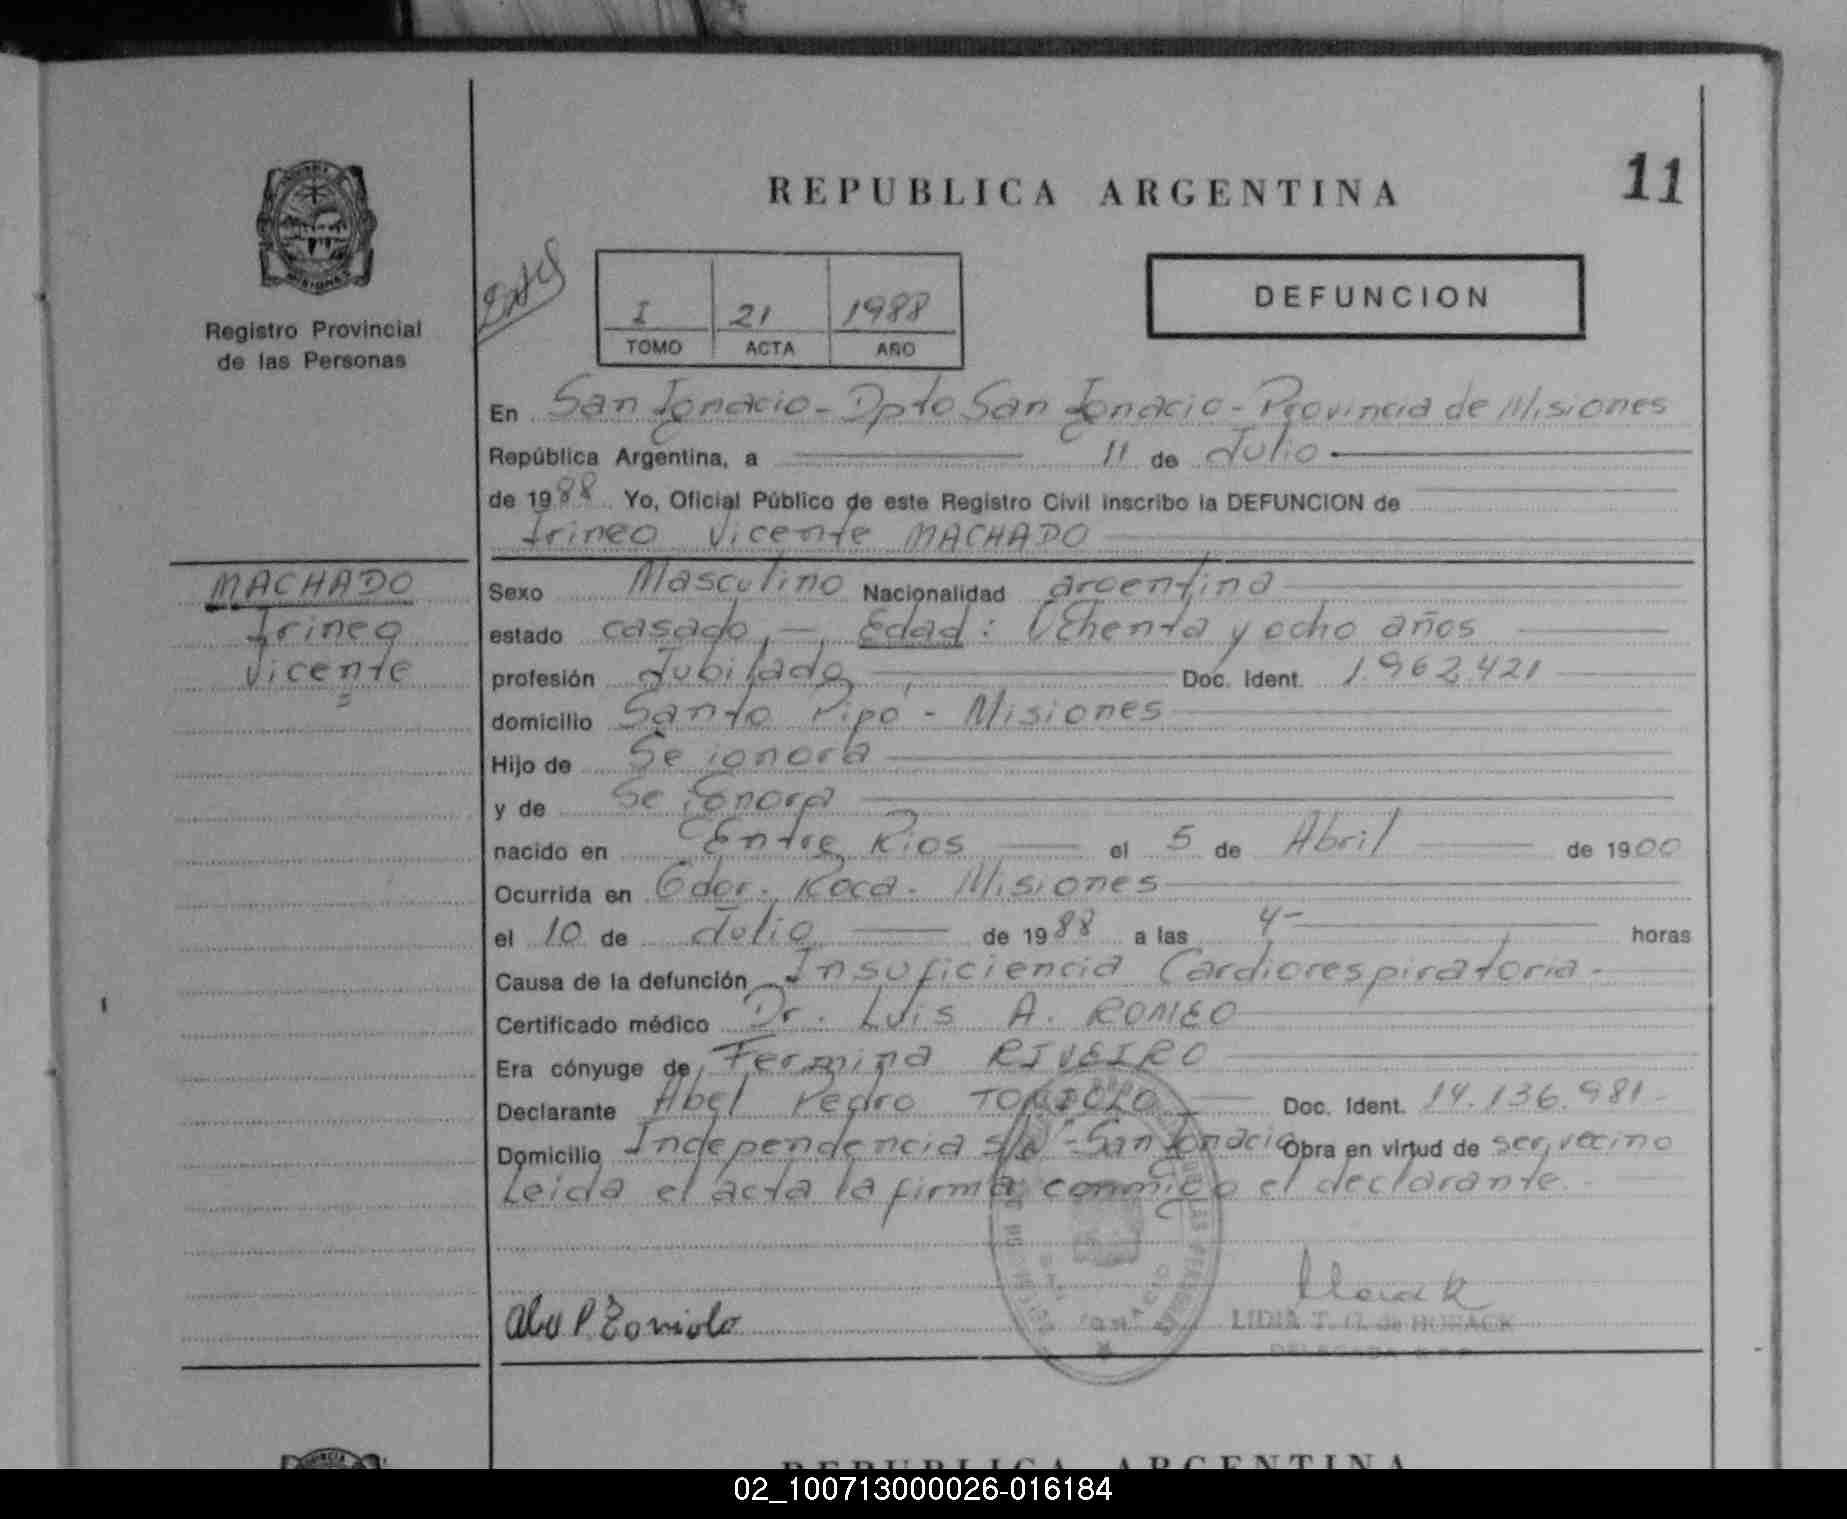 REPUBLICA ARGENTINA
11
Registro Provincial
de las Personas
I 21 1988
TOMO ACTA AÑO
DEFUNCION
En San Ignacio - Dpto San Ignacio - Provincia de Misiones
República Argentina, a 11 de Julio
de 1988 Yo, Oficial Público de este Registro Civil inscribo la DEFUNCION de
Irineo Vicente MACHADO
MACHADO
Irineo
Vicente
Sexo Masculino Nacionalidad argentina
estado casado, -, Edad: Ochenta y ocho años
profesión Jubilado, Doc. Ident. 1.962.421
domicilio Santo Pipó - Misiones
Hijo de Se ignora
y de Se ignora
nacido en Entre Rios el 5 de Abril de 1900
Ocurrida en Gdor. Roca. Misiones
el 10 de Julio de 1988 a las 4- horas
Causa de la defunción Insuficiencia Cardiorespiratoria.
Certificado médico Dr. Luis A. ROMEO
Era cónyuge de Fermina RIVEIRO
Declarante Abel Pedro TONIOLO Doc. Ident. 14.136.981-
Domicilio Independencia s/Nº - San Ignacio Obra en virtud de ser vecino
Leida el acta la firma conmigo el declarante.
P. Toniolo
LIDIA T. G. de HORACK
REPUBLICA ARGENTINA
02_100713000026-016184